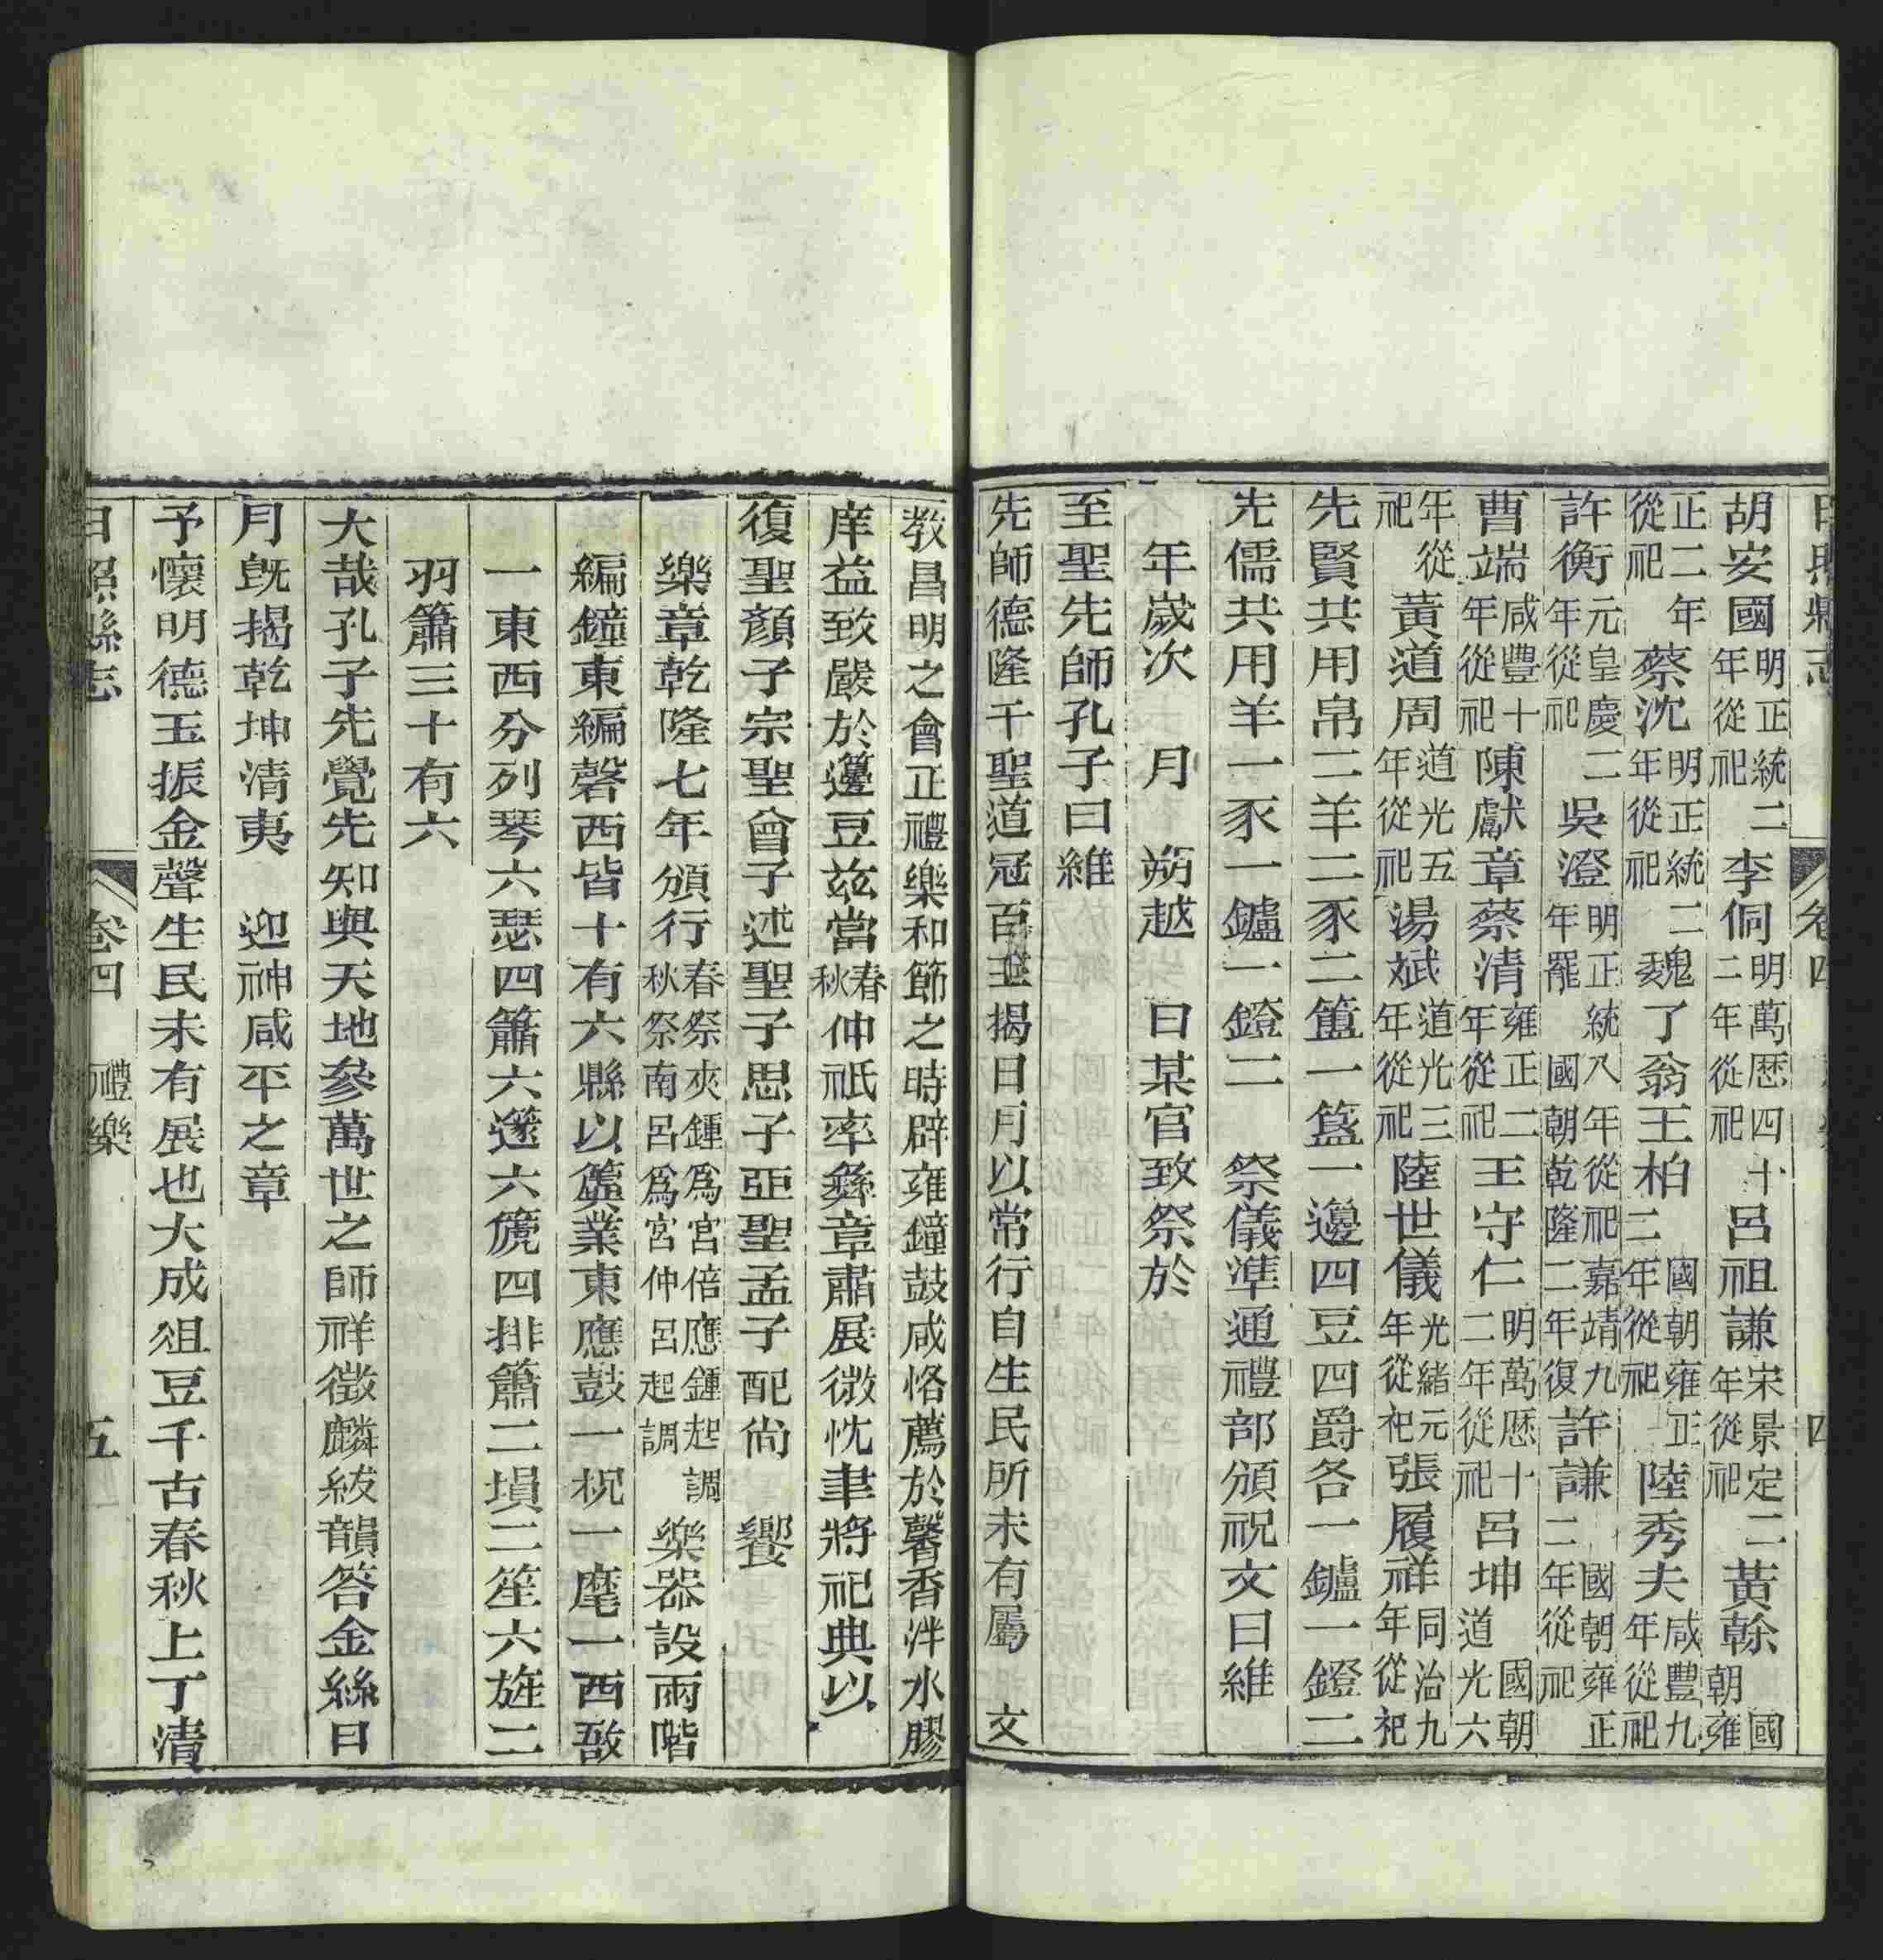 日照縣志 卷四 四
胡安國明正統二年從祀李侗明萬歷四十二年從祀呂祖謙宋景定二年從祀黃榦國朝雍
正二年從祀蔡沈明正統二年從祀魏了翁王柏國朝雍正二年從祀陸秀夫咸豐九年從祀
許衡元皇慶二年從祀吳澄明正統八年從祀嘉靖九年罷國朝乾隆二年復許謙國朝雍正二年從祀
曹端咸豐十年從祀陳獻章蔡清雍正二年從祀王守仁明萬歷十二年從祀呂坤國朝道光六
年從祀黃道周道光五年從祀湯斌道光三年從祀陸世儀光緒元年從祀張履祥同治九年從祀
先賢共用帛二羊二豕二簠一簋一籩四豆四爵各一鑪一鐙二
先儒共用羊一豕一鑪一鐙二 祭儀準通禮部頒祝文曰維
年歲次 月 朔越 日某官致祭於
至聖先師孔子曰維
先師德隆千聖道冠百王揭日月以常行自生民所未有屬 文
教昌明之會正禮樂和節之時辟雍鐘鼓咸恪薦於馨香泮水膠
庠益致嚴於籩豆玆當春秋仲祇率彝章肅展微忱聿將祀典以
復聖顏子宗聖曾子述聖子思子亞聖孟子配尙 饗
樂章乾隆七年頒行春祭夾鍾爲宮倍應鍾起調秋祭南呂爲宮仲呂起調 樂器設兩階
編鐘東編磬西皆十有六縣以簴業東應鼓一柷一麾一西敔
一東西分列琴六瑟四簫六篴六篪四排簫二塤二笙六旌二
羽籥三十有六
大哉孔子先覺先知與天地參萬世之師祥徵麟紱韻答金絲日
月旣揭乾坤清夷 迎神咸平之章
予懷明德玉振金聲生民未有展也大成俎豆千古春秋上丁清
日照縣志 卷四 禮樂 五